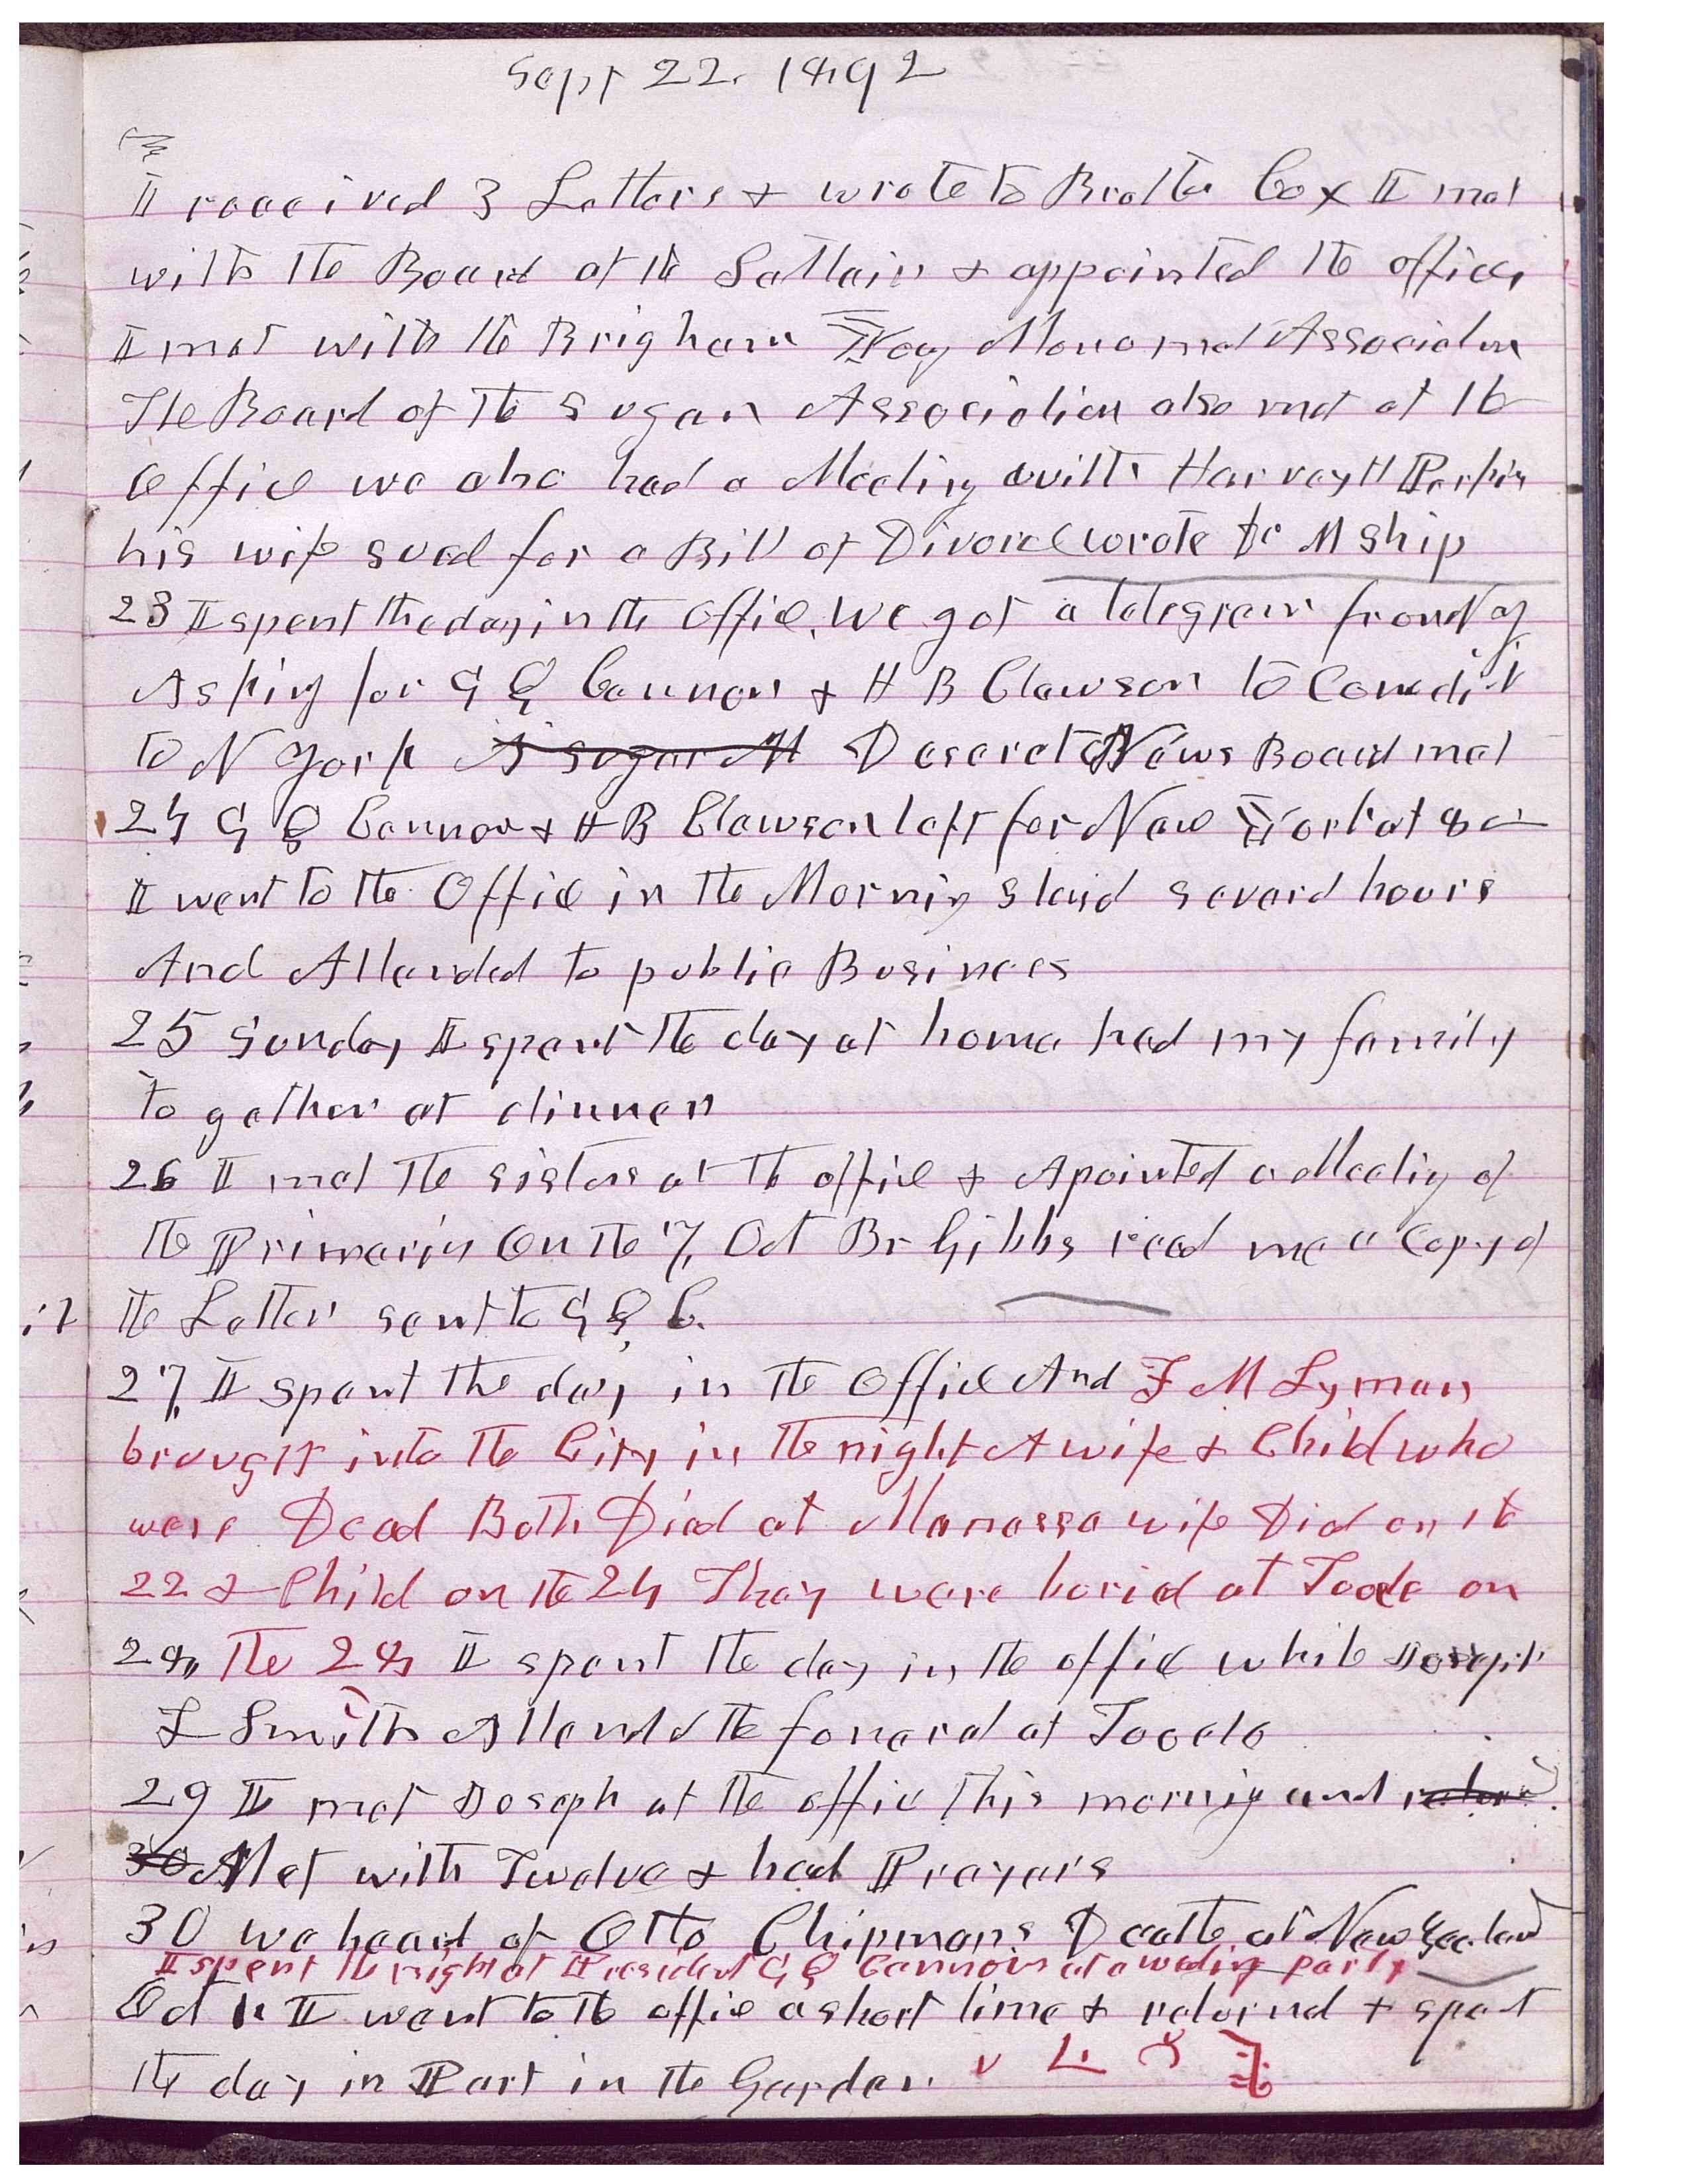 Sept 22. 1892
I received 3 Letters & wrote to Brother Cox I met
with the Board at the Saltair & appointed the offices
I met with the Brigham Young Monomet Association
The Board of the Sugar Association also met at the
office we also had a Meeting with Harvey H Perkins
his wife sued for a Bill of Divorce wrote to M Ship
23 I spent the day in the office. We got a telegram from N Y
Asking for G Q Cannon & H B Clawson to Come
to N York A Sugar M Deseret News Board met
24 G Q Cannon & H B Clawson left for New York at 8 am
I went to the Office in the Morning staid several hours
And Attended to public Business
25 Sunday I spent the day at home had my family
to gether at dinner
26 I met the sisters at the office & Apointed a Meeting of
the Primaries On the 7, Oct Br Gibbs read me a Copy of
the Letter sent to G Q C.
27, I spent the day in the Office And F M Lyman
brought into the City in the night A wife & Child who
were Dead Both Died at Manassa wife Did on the
22 & Child on the 24 They were buried at Tooele on
28, The 28 I spent the day in the office while Joseph
F Smith Attended the foneral at Tooele
29 I met Joseph at the office this morning and
30 Met with Twelve & had Prayers
30 we heard of Otto Chipmans Death at New Zealand
I spent the night at President G Q Cannons at a weding party
Oct 1. I went to the office a short time & returnd & spent
the day in Part in the Garden.